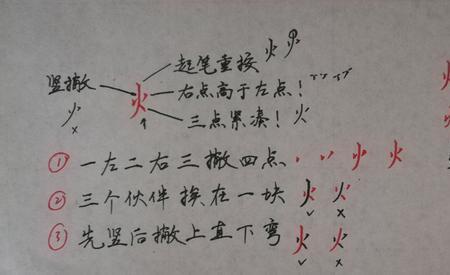 起笔重按 火
竖撇 火 右点高于左点！
火 三点紧凑！ 火
① 一左二右三撇四点 火 火
② 三个伙伴挨在一块 火 火
③ 先竖后撇上直下弯 火 火